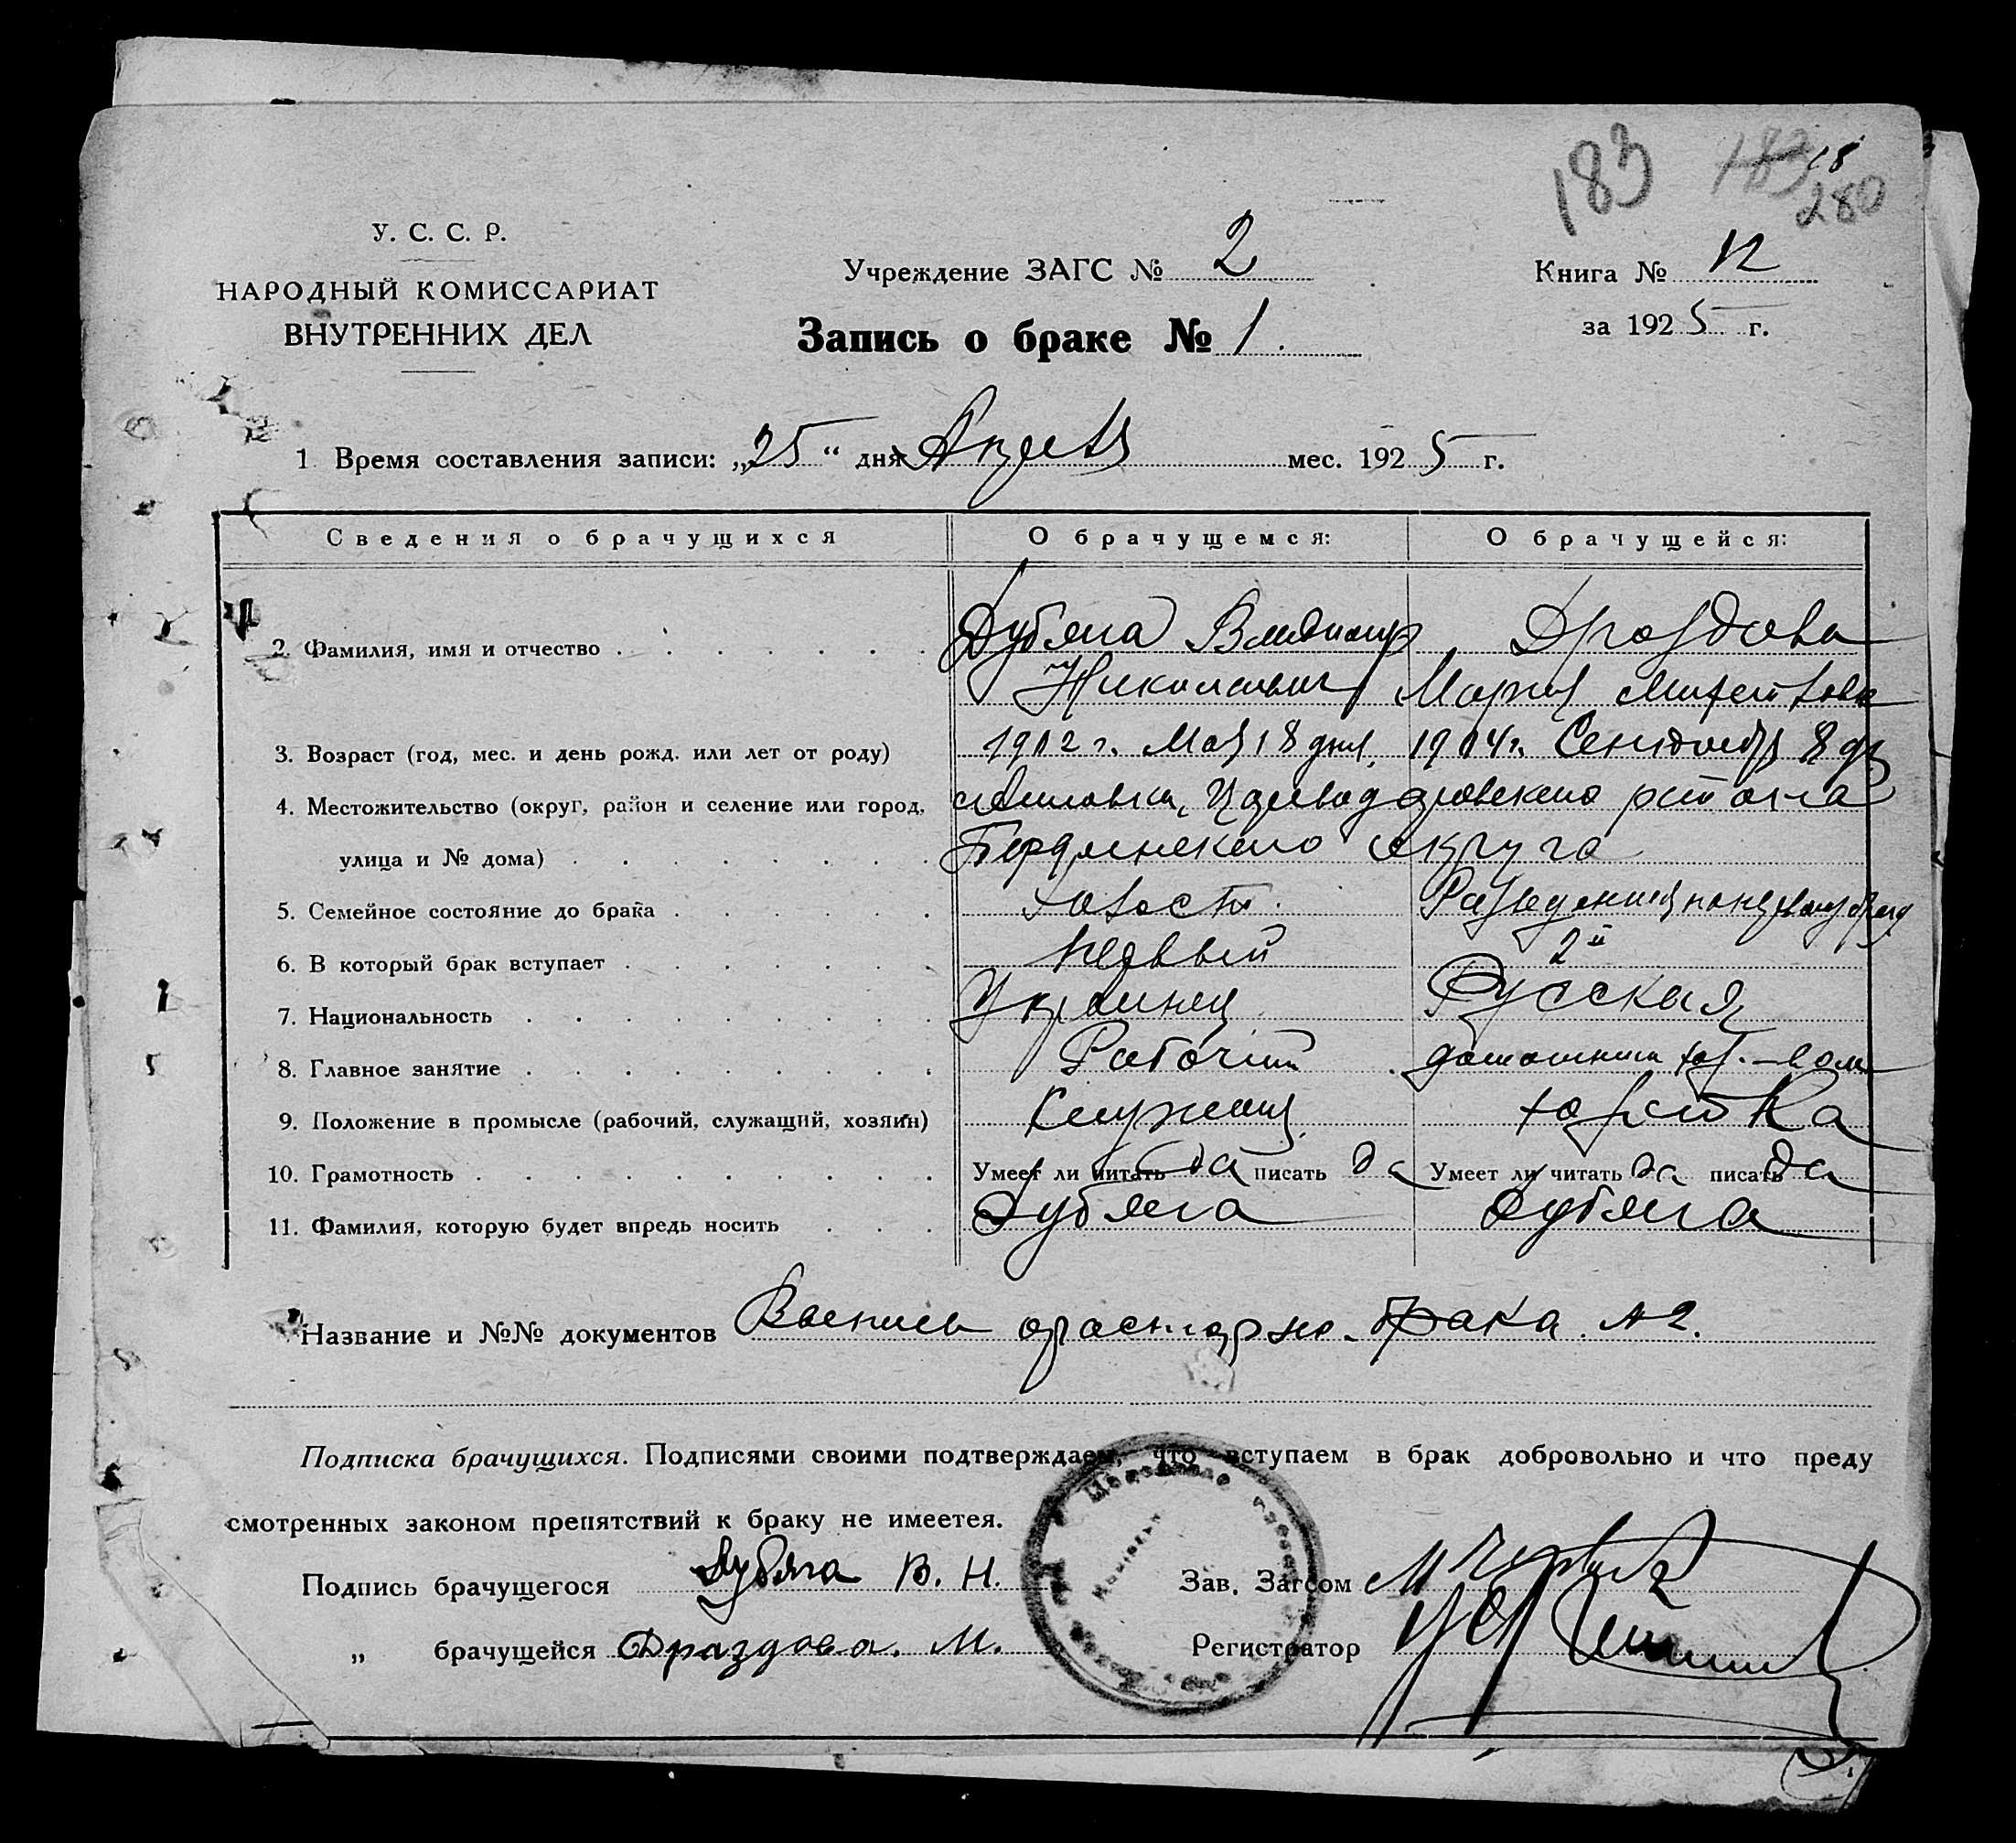 183 183 18
280
У. С. С. Р.
НАРОДНЫЙ КОМИССАРИАТ
ВНУТРЕННИХ ДЕЛ
Учреждение ЗАГС № 2
Запись о браке № 1.
Книга № 12
за 1925 г.
1 Время составления записи: „25“ дня Апреля мес. 1925 г.
Сведения о брачущихся О брачущемся: О брачущейся:
2. Фамилия, имя и отчество Дубяга Владимир Дроздова
Николаевич Мария
3. Возраст (год, мес. и день рожд. или лет от роду) 1902 г. Мая 18 дня 1904 г. Сентября 8 дня
4. Местожительство (округ, район и селение или город, района
улица и № дома) Бердянского округа
5. Семейное состояние до брака холост. Разведенная
6. В который брак вступает первый 2й
7. Национальность Украинец Русская
8. Главное занятие Рабочий домашним хоз.-вом
9. Положение в промысле (рабочий, служащий, хозяин) Служащ. хозяйка
10. Грамотность Умеет ли читать да писать да Умеет ли читать да писать да
11. Фамилия, которую будет впредь носить Дубяга Дубяга
Название и №№ документов Выпись о расторже. брака № 2.
Подписка брачущихся. Подписями своими подтверждаем, что вступаем в брак добровольно и что преду
смотренных законом препятствий к браку не имеетея.
Подпись брачущегося Дубяга В. Н. Зав. Загсом
„ брачущейся Драздова. М. Регистратор